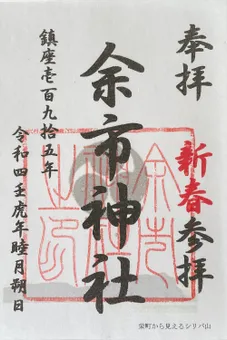 奉拝
新春参拝
余市神社
鎮座壱百九拾五年
令和四壬虎年睦月朔日
栄町から見えるシリパ山